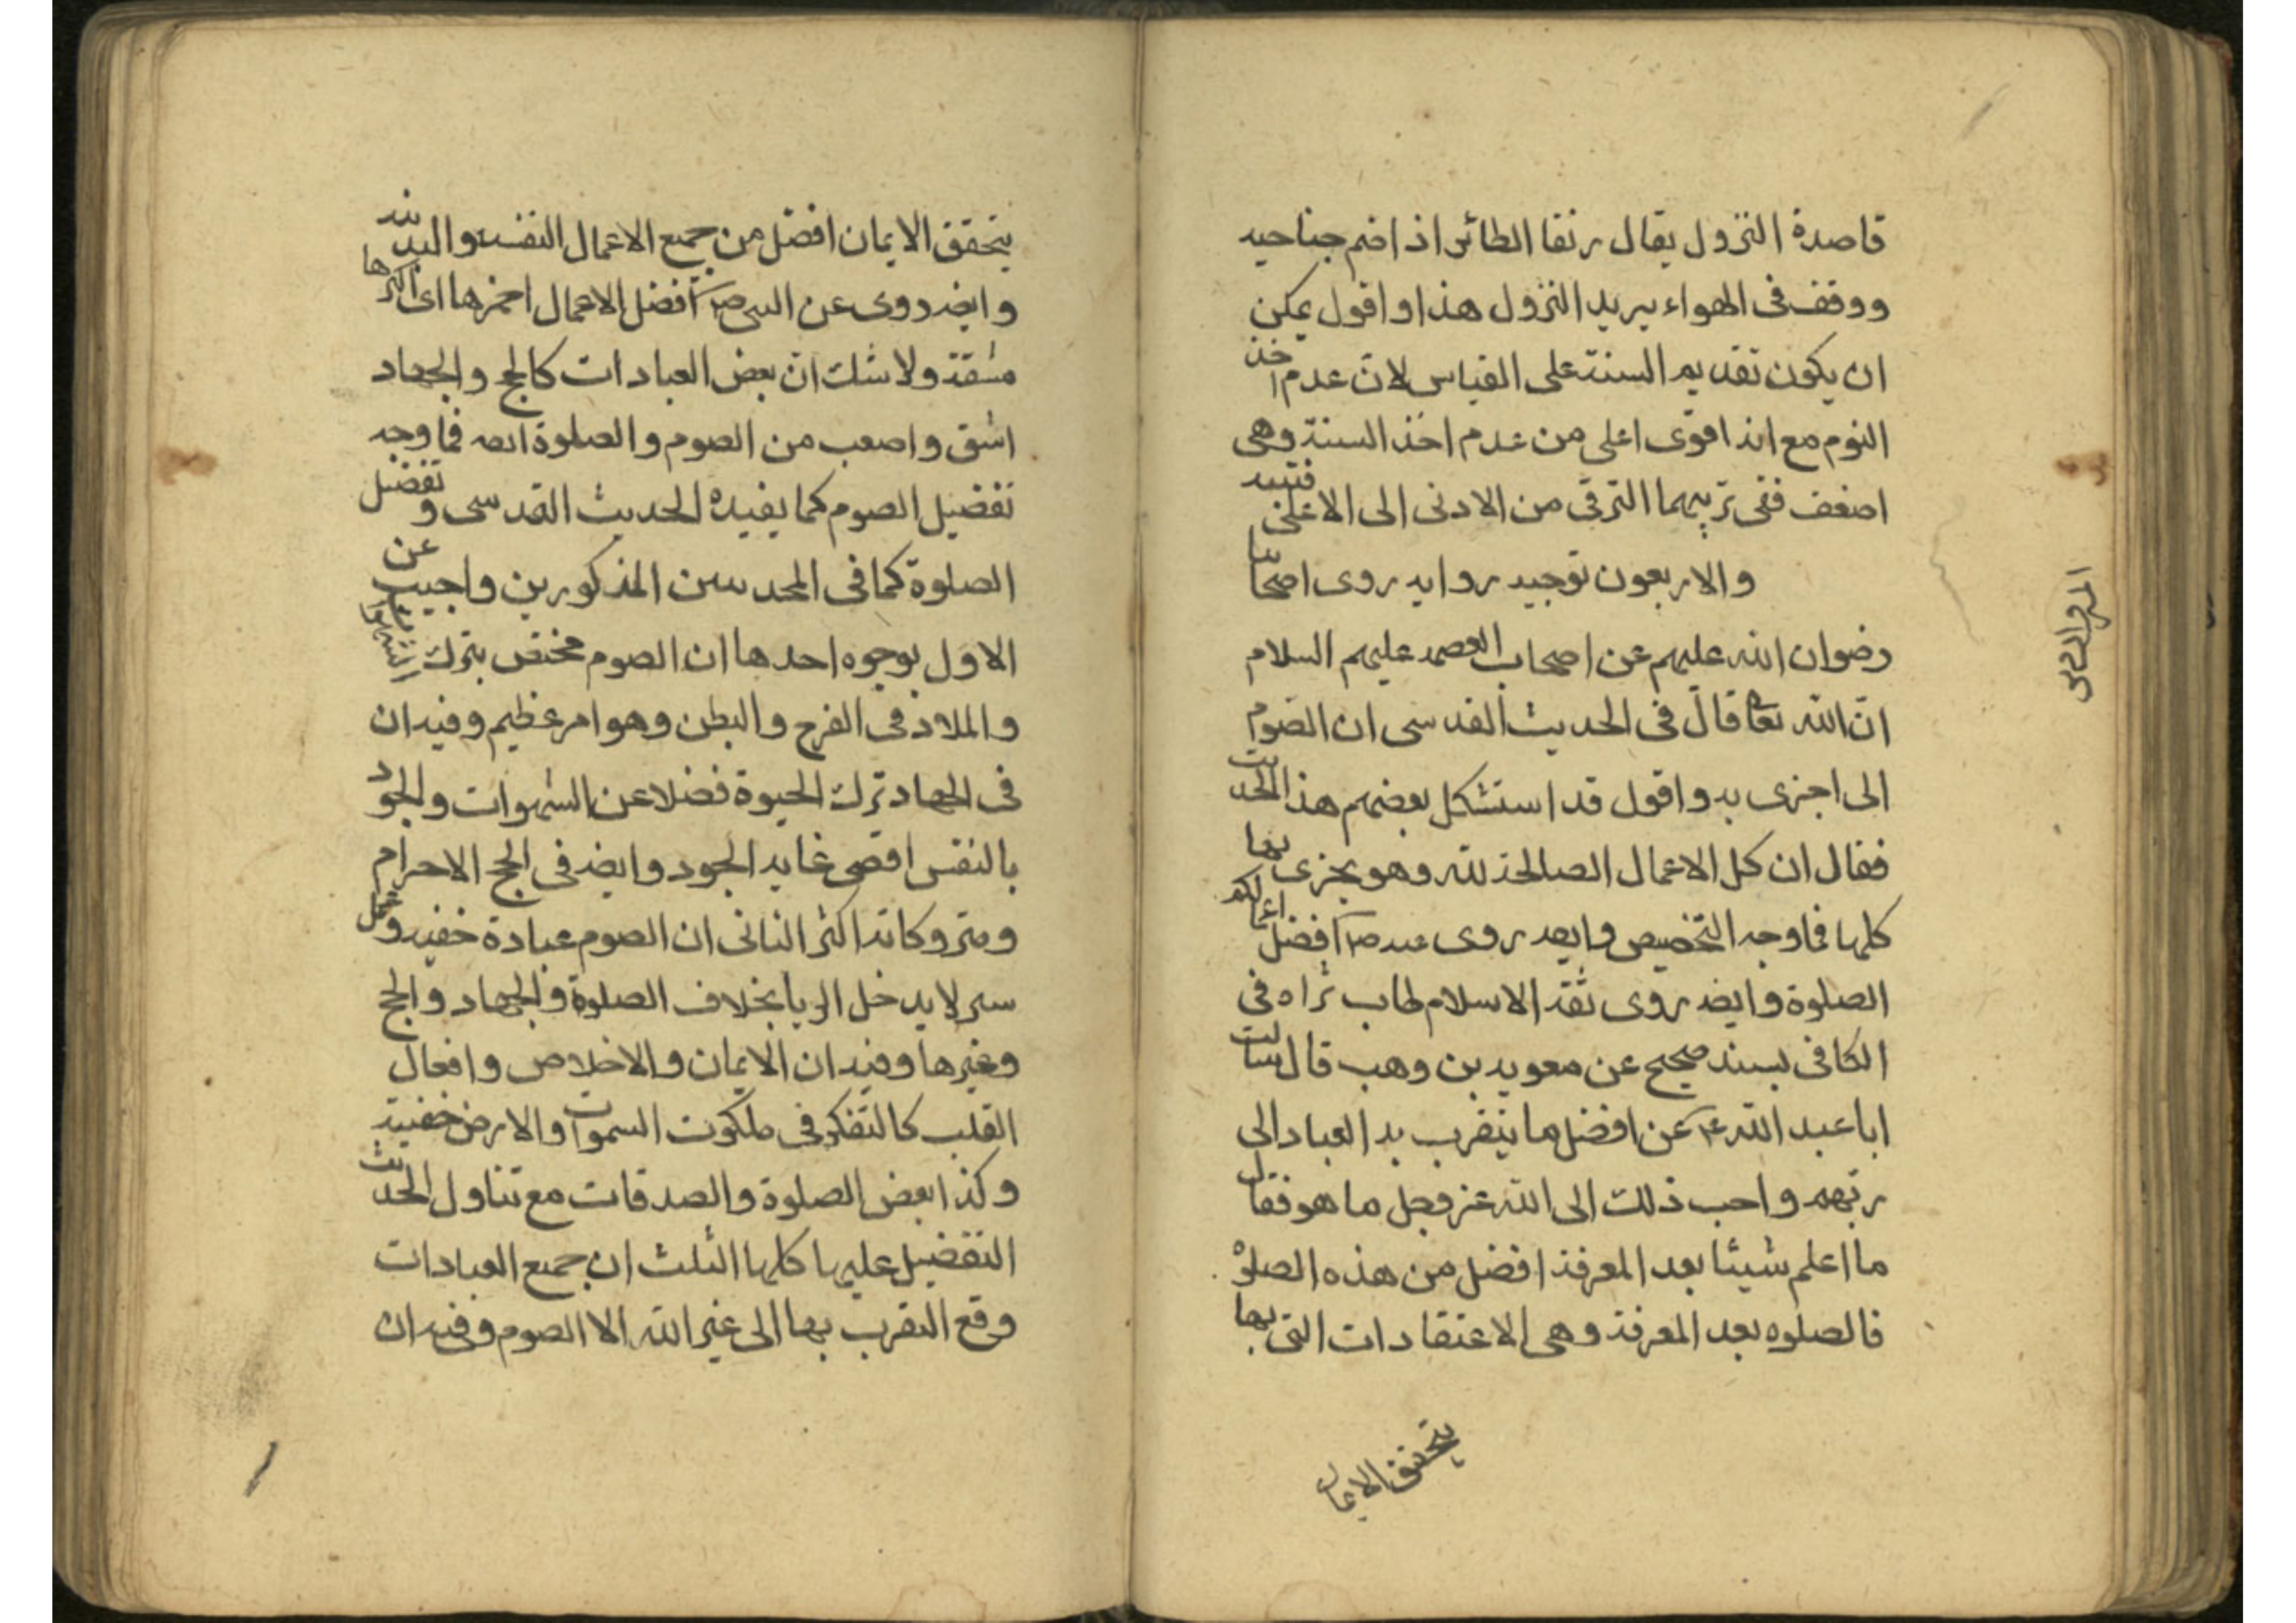 قاصدة النزول يقال رنقا الطائر اذا ضم جناحيه
ووقف فى الهواء يريد النزول هذا واقول يمكن
ان يكون تقديم السنة على القياس لان عدم اخذ
النوم مع انه اقوى اعلى من عدم اخذ السنة وهى
اضعف ففى ترتيبهما الترقى من الادنى الى الاعلى فتنبه
والاربعون توجيه روايه روى اصحابنا
رضوان الله عليهم عن اصحاب العصمه عليهم السلام
انّ الله تعالى قال فى الحديث القدسى ان الصوم
الى اجزى به واقول قد استشكل بعضهم هذا الحديث
فقال ان كل الاعمال الصالحة لله وهو يجزى بها
كلها فما وجه التخصيص وايضه روى عنه ص افضل اعمالكم
الصلوة وايضه روى ثقة الاسلام طاب ثراه فى
الكافى بسند صحيح عن معويه بن وهب قال سالت
ابا عبد الله ع عن افضل ما يتقرب به العباد الى
ربهم واحب ذلك الى الله عز وجل ما هو فقال
ما اعلم شيئا بعد المعرفة افضل من هذه الصلوة
فالصلوه بعد المعرفة وهى الاعتقادات التى بها
يتحقق الايمان
يتحقق الايمان افضل من جميع الاعمال النفسية والبدنيه
وايضه روى عن النبى ص افضل الاعمال احمزها اى اكثرها
مشقة ولا شك ان بعض العبادات كالحج والجهاد
اشق واصعب من الصوم والصلوة ايضه فما وجه
تفضيل الصوم كما يفيده الحديث القدسى وتفضيل
الصلوة كما فى الحديثين المذكورين واجيب عن
الاول بوجوه احدها ان الصوم مختص بترك الشهوات
والملاذ فى الفرج والبطن وهو امر عظيم وفيه ان
فى الجهاد ترك الحيوة فضلا عن الشهوات والجود
بالنفس اقصى غايه الجود وايضه فى الحج الاحرام
ومتروكاته اكثر الثانى ان الصوم عبادة خفيه وعمل
سر لا يدخل الريا بخلاف الصلوة والجهاد والحج
وغيرها وفيه ان الايمان والاخلاص وافعال
القلب كالتفكر فى ملكوت السموات والارض خفيية
وكذا بعض الصلوة والصدقات مع تناول الحديث
التفضيل عليها كلها الثلث ان جميع العبادات
وقع التقرب بها الى غير الله الا الصوم وفيه ان